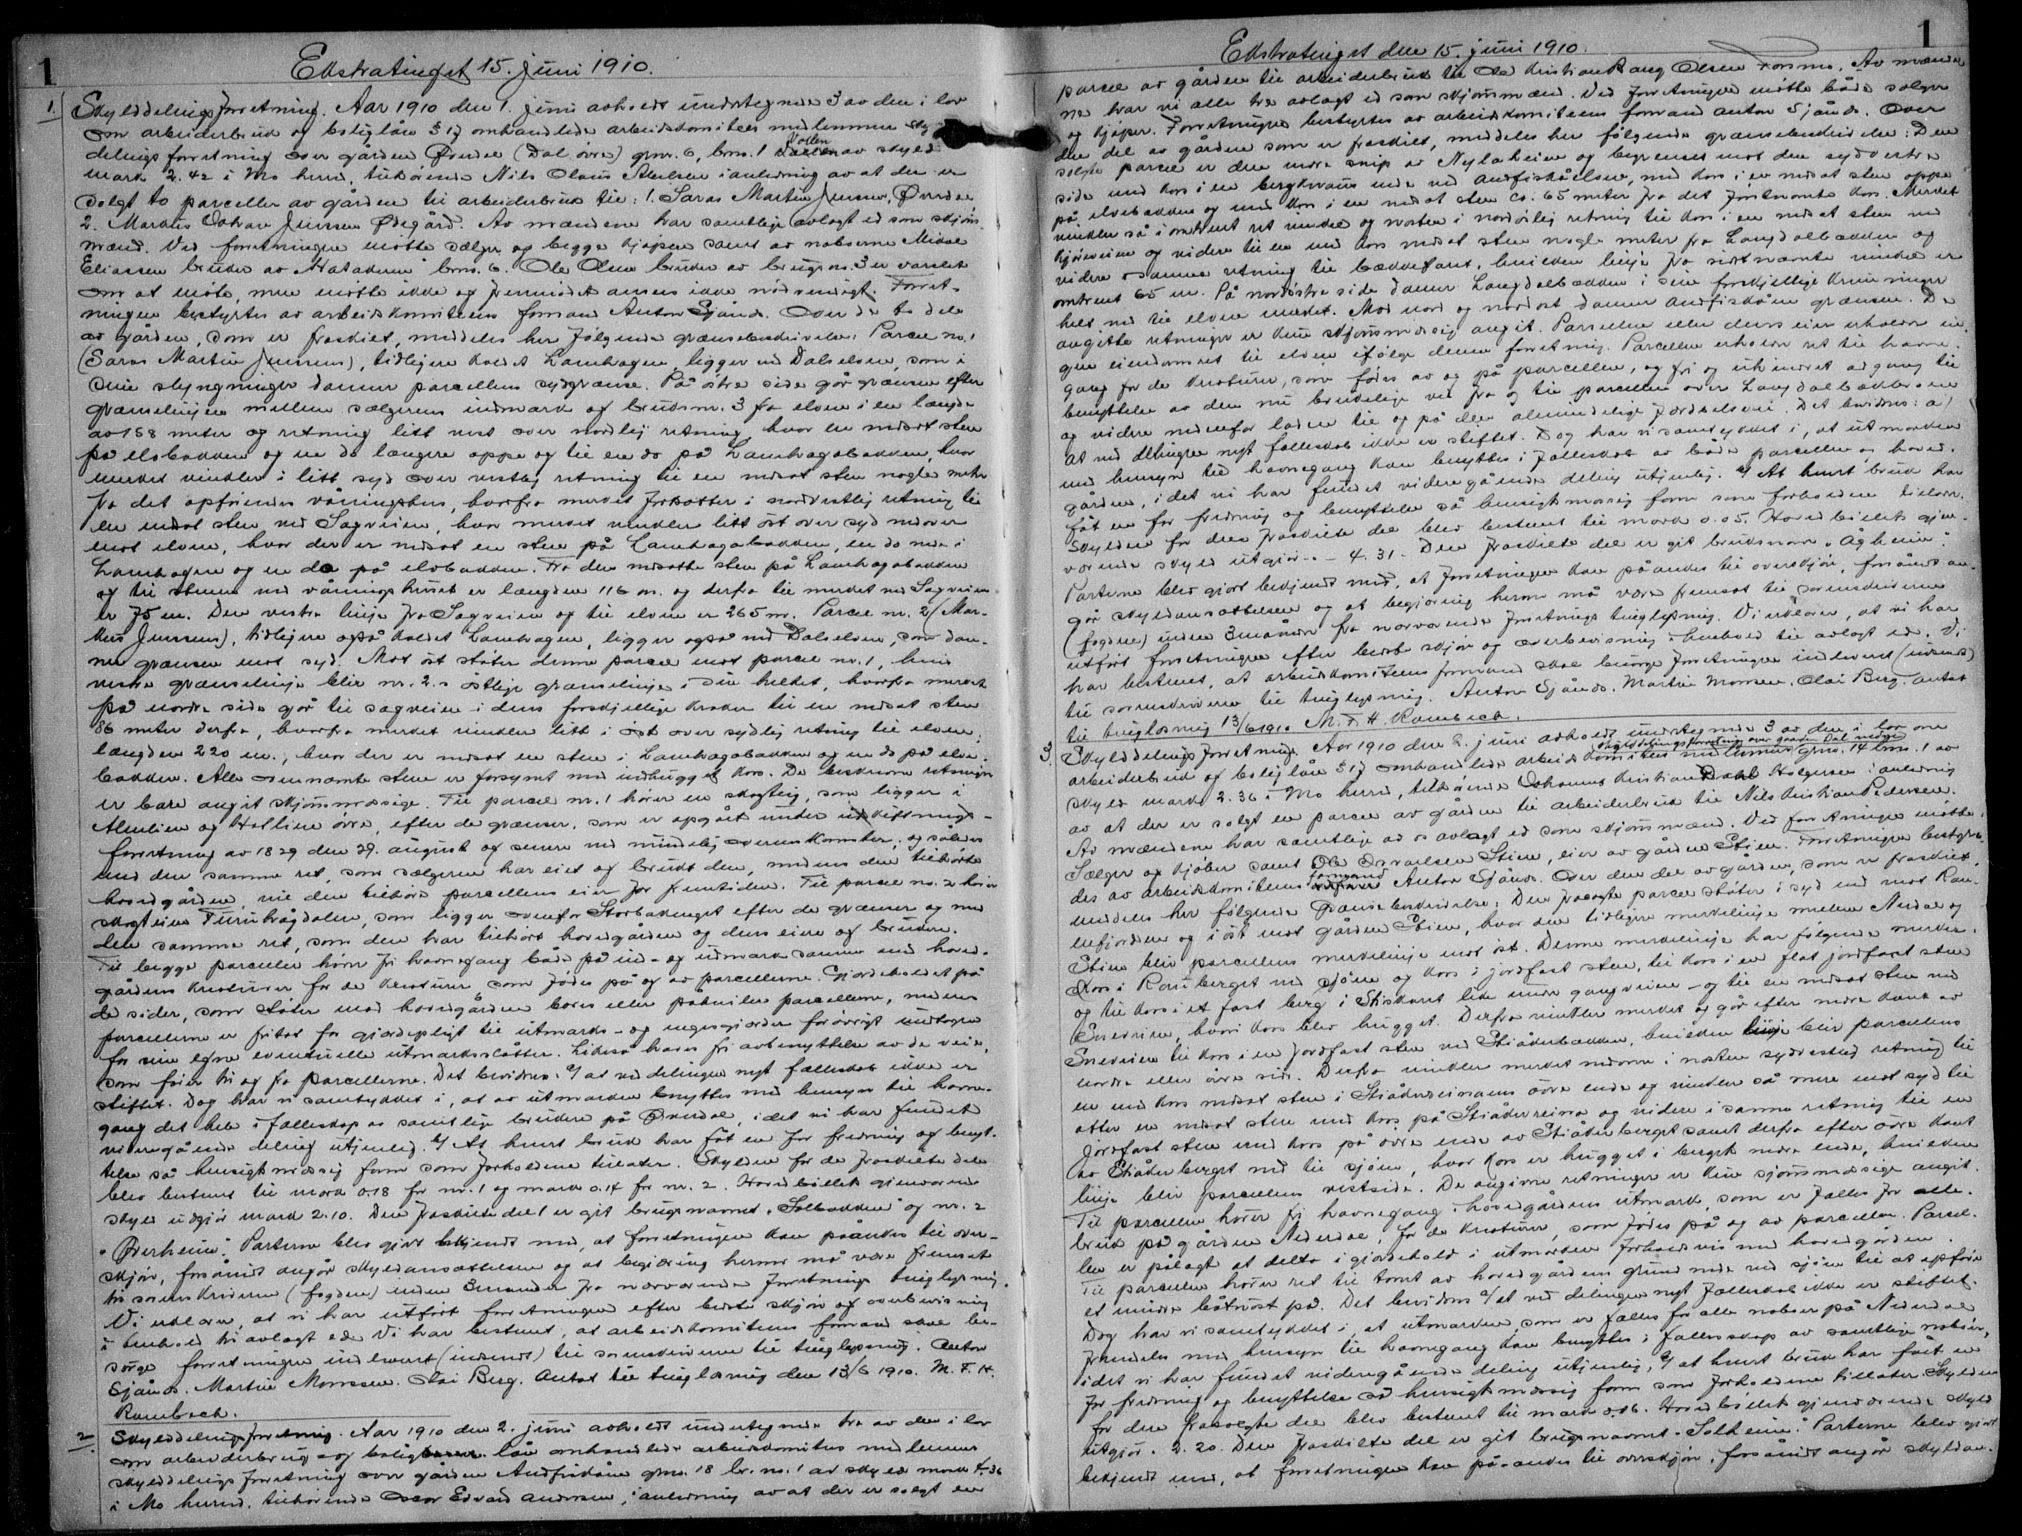 1
Ekstratinget 15. Juni 1910.
1. Skylddelingsforretning. Aar 1910 den 1. juni avholdt undertegnede 3 av den i lov
om arbeiderbruk og boliglån § 17 omhandlede arbeidskomitees medlemmer skyld-
delings forretning over gården Øverdal (Dal øvre) gnr. 6, brn. 1 av skyld
mark 2.42 i Mo herred, tilhørende Nils Olaus Nielsen i anledning av at der er
solgt to parceller av gården til arbeiderbruk til: 1. Saras Martin Jensen, Øverdal
2. Markus Johan Jensen Ødegård. Av mændene har samtlige avlagt ed som skjøns
mænd. Ved forretningen møtte sælger og begge kjøpere samt av naboerne Mikal
Eliassen bruker av brn. 6. Ole Olsen bruker av brugsnr. 3 er varslet
om at møte, men møtte ikke og fremmøtet ansees ikke nødvendigt. Forret-
ningen bestyrtes av arbeidskomiteens formand Anton Sjånes. Over de to dele
av gården, som er fraskilt, meddeles her følgende grænsebeskrivelse: Parcel no. 1
(Saras Martin Jensens), tidligere kaldet Lamhagen, ligger ved Dalselven, som i
sine slyngninger danner parcellens sydgrænse. På østre side går grænsen efter
grænselinjen mellem sælgerens indmark og bruksnr. 3 fra elven i en længde
av 158 meter og retning litt vest over nordlig retning hvor en nedsat sten
på elvbakken og en do længere oppe og til en do på Lamhagabakken, hvor
merket vinkler i litt syd over vestlig retning til en nedsat sten nogle meter
fra det opførendes våningshus, hvorfra merket fortsætter i nordvestlig retning til
en nedsat sten ved Sagveien, hvor merket vinkler litt øst over syd nedover
mot elven, hvor der er nedsat en sten på Lamhagabakken, en do nede i
Lamhagen og en do på elvbakken. Fra den nedsatte sten på Lamhagabakken
og til stenen ved våningshuset er længden 116 m. og derfra til merket ved Sagveien
er 75 m. Den vestre linje fra Sagveien og til elven er 265 m. Parcel nr. 2 (Mar-
kus Jensens), tidligere også kaldet Lamhagen, ligger også ved Dalselven, som dan-
ner grænsen mot syd. Mot øst støter denne parcel mot parcel nr. 1, hvis
vestre grænselinje blir nr. 2.s østlige grænselinje i sin helhet, hvorfra merket
på nordre side går til sagveien i dens forskjellige kroker til en nedsat sten
86 meter derfra, hvorfra merket vinkler litt i øst over sydlig retning til elven,
længden 220 m., hvor der er nedsat en sten i Lamhagabakken og en do på elve-
bakken. Alle ovennævnte stene er forsynt med indhugget kors. De beskrevne retninger
er bare angit skjønsmæssige. Til parcel nr. 1 hører en skogteig, som ligger i
og Hollien øvre, efter de grænser, som er opgået under utskiftnings-
forretning av 1829 den 29. august og senere ved mindelig overenskomster, og således
med den samme ret, som sælgeren har eiet og brukt den, medens den tilhørte
hovedgården, vil den tilhøre parcellens eier for fremtiden. Til parcel no. 2 hører
skogteien Furuhågdalen, som ligger ovenfor efter de grænser og med
den samme ret, som den har tilhørt hovedgården og dens eiere og brukere.
Til begge parceller hører fri havnegang både på ind- og udmark sammen med hoved-
gårdens kreaturer for de kreaturer som fødes på og av parcellerne. Gjærdeholdet på
de sider, som støter mod hovedgården bæres eller påhviler parcellerne, medens
parcellerne er fritat for gjærdepligt til utmarks- og engesgjærder forøvrigt undtagen
for sine egne eventuelle utmarksslåtter. Likeså haves fri avbenyttelse av de veie,
som fører til og fra parcellerne. Det bevidnes: a/ at ved delingen nyt fællesskab ikke er
stiftet. Dog har vi samtykket i, at av utmarken benyttes med hensyn til havne-
gang det hele i fællesskap av samtlige brukere på Øverdal, idet vi har fundet
videregående deling utjenlig. b/ At hvert bruk har fåt en for fredning og benyt-
telse så hensigtsmæssig form som forholdene tillater. Skylden for de fraskilte dele
blev bestemt til mark 0.18 for nr. 1 og mark 0.14 for nr. 2. Hovedbøllets gjenværende
skyld udgjør mark 2.10. Den fraskilte del 1 er git brugsnavnet „Solbakken" og nr. 2
„Øverheim". Parterne blev gjort bekjendt med, at forretningen kan påankes til over-
skjøn, forsåvidt angår skyldansættelsen og at begjæring herom må være fremsat
til sorenskriveren (fogden) inden 3 måneder fra nærværende forretnings tinglysning.
Vi erklærer, at vi har utført forretningen efter bedste skjøn og overbevisning
i henhold til avlagt ed. Vi har bestemt, at arbeidskomiteens formand skal be-
sørge forretningen indlevert (indsendt) til sorenskriveren til tinglysning. Anton
Sjånes. Martin Monssen. Olai Berg. Antat til tinglæsning den 13/6 1910. M. F. H.
Rambech.
2. Skylddelingsforretning. Aar 1910 den 2. juni avholdt undertegnede tre av den i lov
om arbeiderbrug og bolig lån omhandlede arbeidskomites medlemmer
skylddelings forretning over gården Andfiskåen gnr. 18 br. no. 1 av skyld mark 4.36
i Mo herred, tilhørende Oscar Edvard Andersen, i anledning av at der er solgt en
1
Ekstratinget den 15. juni 1910.
parcel av gården til arbeiderbruk til Ole Kristian Rang Olsen Forsmo. Av mænde
ne har vi alle tre avlagt ed som skjønsmænd. Ved forretningen møtte både sælger
og kjøper. Forretningen bestyrtes av arbeidskomiteens formand Anton Sjånes. Over
den del av gården som er fraskilt, meddeles her følgende grænsebeskrivelse: Den
solgte parcel er den nedre snip av Nylaheien og begrenses mot den sydvestre
side med kors i en bergknaus nede ved Andfiskåelven, med kors i en nedsat sten oppe
på elvebakken og med kors i en nedsat sten ca. 65 meter fra det førstnævnte kors. Merket
vinkler så i omtrent ret vinkel og næsten i nordlig retning til kors i en nedsat sten ved
kjøreveien og videre til en med kors nedsat sten nogle meter fra Langdalbækken og
videre samme retning til bækkefaret, hvilken linje fra sistnævnte vinkel er
omtrent 65 m. På nordøstre side danner Langdalbækken i sine forskjellige krumninger
helt ned til elven merket. Mod nord og nordøst danner Andfiskåen grænsen. De
angitte retninger er kun skjønsmæssig angit. Parcellen eller dens eier erholder in
gen eiendomsret til elven ifølge denne forretning. Parcellen erholder ret til havne-
gang for de kreaturer, som fødes av og på parcellen, og fri og uhindret adgang til
benyttelse av den nu brukelige vei fra og til parcellen over Langdalbækken
og videre nedenfor laden til og på den almindelige Det bevidnes: a)
At ved delingen nyt fællesskab ikke er stiftet. Dog har vi samtykket i, at utmarken
med hensyn til havnegang kan benyttes i fællesskab av både parcellen og hoved-
gården, idet vi har fundet videregående deling utjenlig. b/ At hvert bruk har
fåt en for fredning og benyttelse så hensigtsmæssig form som forholdene tillater.
Skylden for den fraskilte del blev bestemt til mark 0.05. Hovedbøllets gjen-
værende skyld utgjør – 4.31. Den fraskilte del er git bruksnavn „Agheim".
Parterne blev gjort bekjendt med, at forretningen kan påankes til overskjøn, forsåvidt an-
går skyldansættelsen og at begjæring herom må være fremsat til sorenskriveren
(fogden) inden 3 måneder fra nærværende forretnings tinglysning. Vi erklærer, at vi har
utført forretningen efter bedste skjøn og overbevisning i henhold til avlagt ed. Vi
har bestemt, at arbeidskomiteens formand skal besørge forretningen indlevert (indsendt)
til sorenskriveren til tinglysning. Anton Sjånes. Martin Monssen. Olai Berg. Antat
til tinglæsning 13/6 1910. M. F. H. Rambech.
3. Skylddelingsforretning. Aar 1910 den 2. juni avholdt undertegnede 3 av den i lov om
skylddelingsforretning over gården Dal nedre
arbeiderbruk og boliglån § 17 omhandlede arbeidskomites medlemmer gnr. 14 brn. 1 av
skyld mark 2.36 i Mo herred, tilhørende Johannes Kristian Holgersen i anledning
av at der er solgt en parcel av gården til arbeiderbruk til Nils Kristian Pedersen.
Av mændene har samtlige av os avlagt ed som skjønsmænd. Ved forretningen møtte:
Sælger og kjøber samt Ole Stien, eier av gården Stien. Forretningen bestyre-
des av arbeidskomiteens formand Anton Sjånes. Over den del av gården, som er fraskilt,
meddeles her følgende Grænsebeskrivelse: Den fraskilte parcel støter i syd ned mot Ran-
enfjorden og i øst mot gården Stien, hvor den tidligere merkelinje mellem Nerdal og
Stien blir parcellens merkelinje mot øst. Denne merkelinje har følgende merker:
Kors i Rauberget ved sjøen og kors i jordfast sten, til kors i en flat jordfast sten
og til kors i et fast berg i Stiskaret like under gangveien – og til en nedsat sten ved
Eneveien, hvori kors blev hugget. Derfra vinkler merket og går efter nedre kant av
Eneveien til kors i en jordfast sten ved Stiåkerbækken, hvilken linje blir parcellens
nordre eller øvre side. Derfra vinkler merket nedover i næsten sydvestlig retning til
en med kors nedsat sten i Stiåkerreinens øvre ende og vinkler så mere mot syd til
atter en nedsat sten med kors på Stiåkerreina og videre i samme retning til en
jordfast sten med kors på øvre ende av Stiåkerberget samt derfra efter øvre kant
av Stiåkerberget ned til sjøen, hvor kors er hugget i berget nedre ende, hvilken
linje blir parcellens vestside. De angivne retninger er kun skjønsmæssige angit.
Til parcellen hører fri havnegang i hovedgårdens utmark, som er fælles for alle
bruk på gården Nederdal, for de kreaturer, som fødes på og av parcellen. Parcel-
len er pålagt at delta i gjærdehold i utmarken forholdsvis med hovedgården.
Til parcellen hører ret til tomt av hovedgårdens grund nede ved sjøen til at opføre
et mindre båtnøst på. Det bevidnes a/ at ved delingen nyt fællesskab ikke er stiftet.
Dog har vi samtykket i, at utmarken, som er fælles for alle naboer på Nederdal
fremdeles med hensyn til havnegang kan benyttes i fællesskap av samtlige naboer,
idet vi har fundet videregående deling utjenlig, b/ at hvert bruk har fået en
for fredning og benyttelse så hensigtsmæssig form som forholdene tillater. Skylden
for den fraskilte del blev bestemt til mark 0.16. Hovedbøllets gjenværende skyld
utgjør 2.20. Den fraskilte del er git brugsnavnet „Solheim". Parterne blev gjort
bekjendt med, at forretningen kan påankes til overskjøn, forsåvidt angår skyldan-